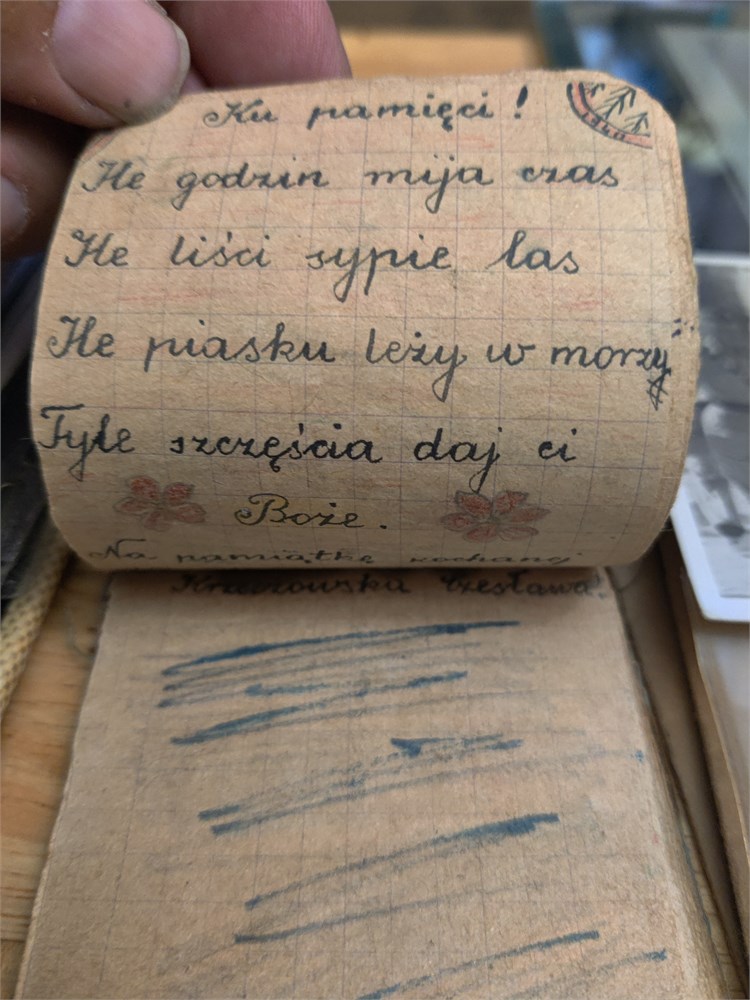 Ku pamięci!
1940
Ile godzin mija czas
Ile liści sypie las
Ile piasku leży w morzy
Tyle szczęścia daj ci
Boże.
Na pamiątkę kochanej
Czesława